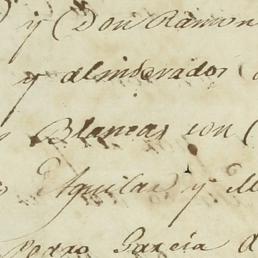 y Don Ramon
y alinderados
Blancas con
Aguilar y M
Pedro Garcia d